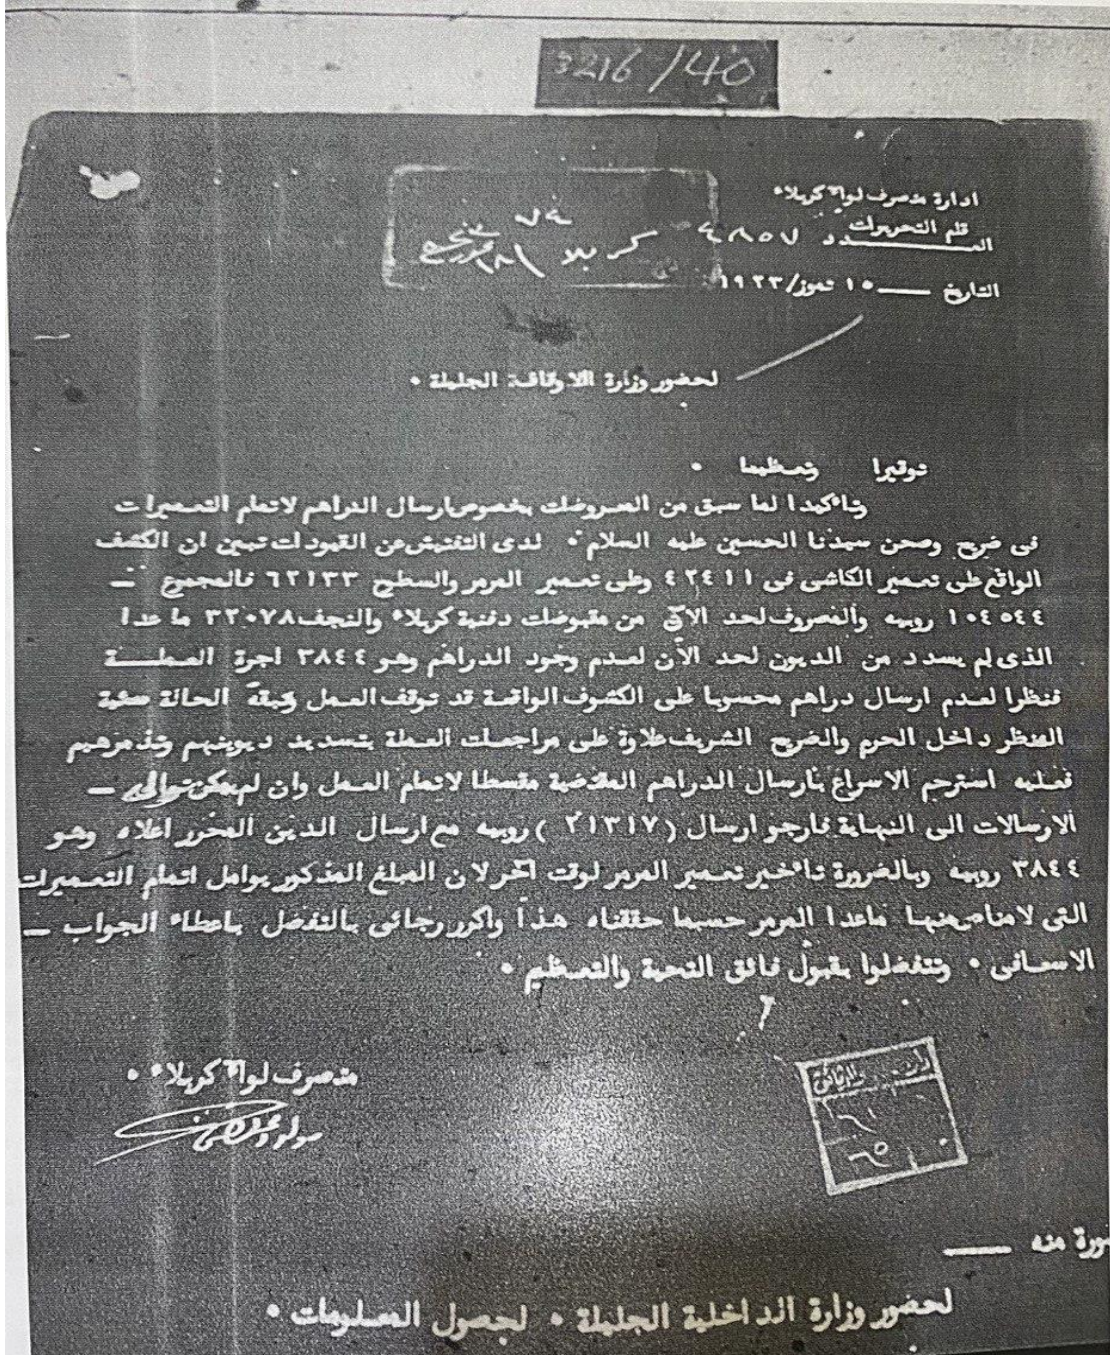 3216/40
ادارة متصرف لواء كربلاء
قلم التحريرات
العدد ٤٨٥٧
كربلا
التاريخ ــــ ١٥ تموز/١٩٢٣
لحضور وزارة الاوقاف الجليلة ٠
توقيرا وتعظيما ٠
وتاكيدا لما سبق من المعروضات بخصوص ارسال الدراهم لاتمام التعميرات
فى ضريح وصحن سيدنا الحسين عليه السلام ٠ لدى التفتيش عن القيودات تبين ان الكشف
الواقع على تعمير الكاشى فى ٤٢٤١١ وعلى تعمير المرمر والسطح ٦٢١٣٣ فالمجموع ــ
١٠٤٥٤٤ روبيه والمصروف لحد الان من مقبوضات دفنية كربلاء والنجف ٣٢٠٧٨ ما عدا
الذى لم يسدد من الديون لحد الآن لعدم وجود الدراهم وهو ٣٨٤٤ اجرة العملــة
فنظرا لعدم ارسال دراهم محسوبا على الكشوف الواقعة قد توقف العمل وبقت الحالة سيئة
المنظر داخل الحرم والضريح الشريف علاوة على مراجعات العملة بتسديد ديونهم وتذمرهم
فعليه استرحم الاسراع بارسال الدراهم المقتضية مقسطا لاتمام العمل وان لم يمكن توالى ــ
الارسالات الى النهاية فارجو ارسال (٢١٣١٧) روبيه مع ارسال الدين المحرر اعلاه وهو
٣٨٤٤ روبيه وبالضرورة تاخير تعمير المرمر لوقت اخر لان المبلغ المذكور يوامل اتمام التعميرات
التى لامناص منها ماعدا المرمر حسبما حققناه هذا واكرر رجائى بالتفضل باعطاء الجواب ــ
الاسعافى ٠ وتفضلوا بقبول فائق التحية والتعظيم ٠
متصرف لواء كربلاء ٠
مولود
صورة منه ــــ
لحضور وزارة الداخلية الجليلة ٠ لحصول المعلومات ٠